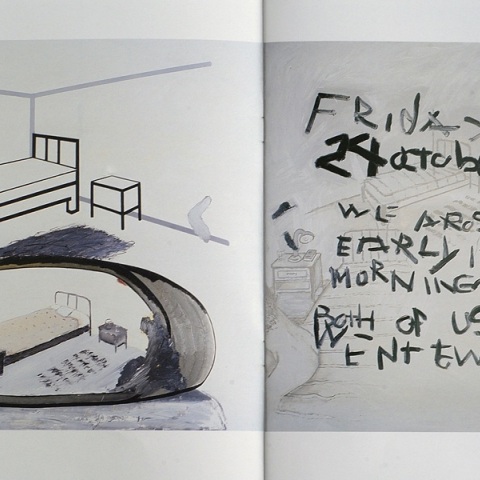 FRIDAY
24 octob
WE AROS
EARLY I
MORNING
BOTH OF US
WENT EW